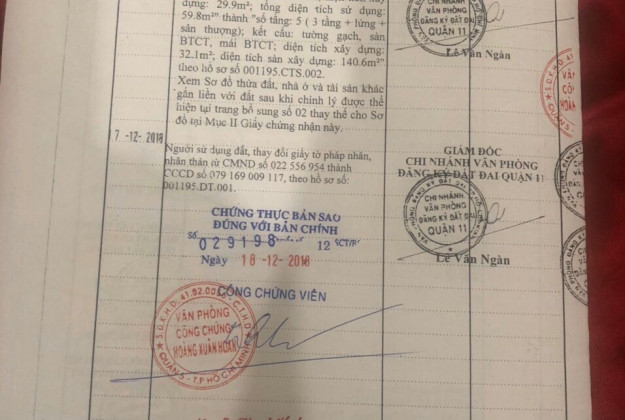 dựng: 29.9m²; tổng diện tích sử dụng:
59.8m²" thành "số tầng: 5 ( 3 tầng + lửng +
sân thượng); kết cấu: tường gạch, sàn
BTCT, mái BTCT; diện tích xây dựng:
32.1m²; diện tích sàn xây dựng: 140.6m²"
theo hồ sơ số 001195.CTS.002.
Xem Sơ đồ thửa đất, nhà ở và tài sản khác
gắn liền với đất sau khi chỉnh lý được thể
hiện tại trang bổ sung số 02 thay thế cho Sơ
đồ tại Mục II Giấy chứng nhận này.
CHI NHÁNH
VĂN PHÒNG
ĐĂNG KÝ ĐẤT ĐAI
QUẬN 11
Lê Văn Ngàn
7 -12- 2018
Người sử dụng đất, thay đổi giấy tờ pháp nhân,
nhân thân từ CMND số 022 556 954 thành
CCCD số 079 169 009 117, theo hồ sơ số:
001195.DT.001.
GIÁM ĐỐC
CHI NHÁNH VĂN PHÒNG
ĐĂNG KÝ ĐẤT ĐAI QUẬN 11
CHI NHÁNH
VĂN PHÒNG
ĐĂNG KÝ ĐẤT ĐAI
QUẬN 11
Lê Văn Ngàn
CHỨNG THỰC BẢN SAO
ĐÚNG VỚI BẢN CHÍNH
Số 029198 12 SCT/BS
Ngày 18 -12- 2018
CÔNG CHỨNG VIÊN
VĂN PHÒNG
CÔNG CHỨNG
HOÀNG XUÂN HOAN
QUẬN 5 - T.P HỒ CHÍ MINH